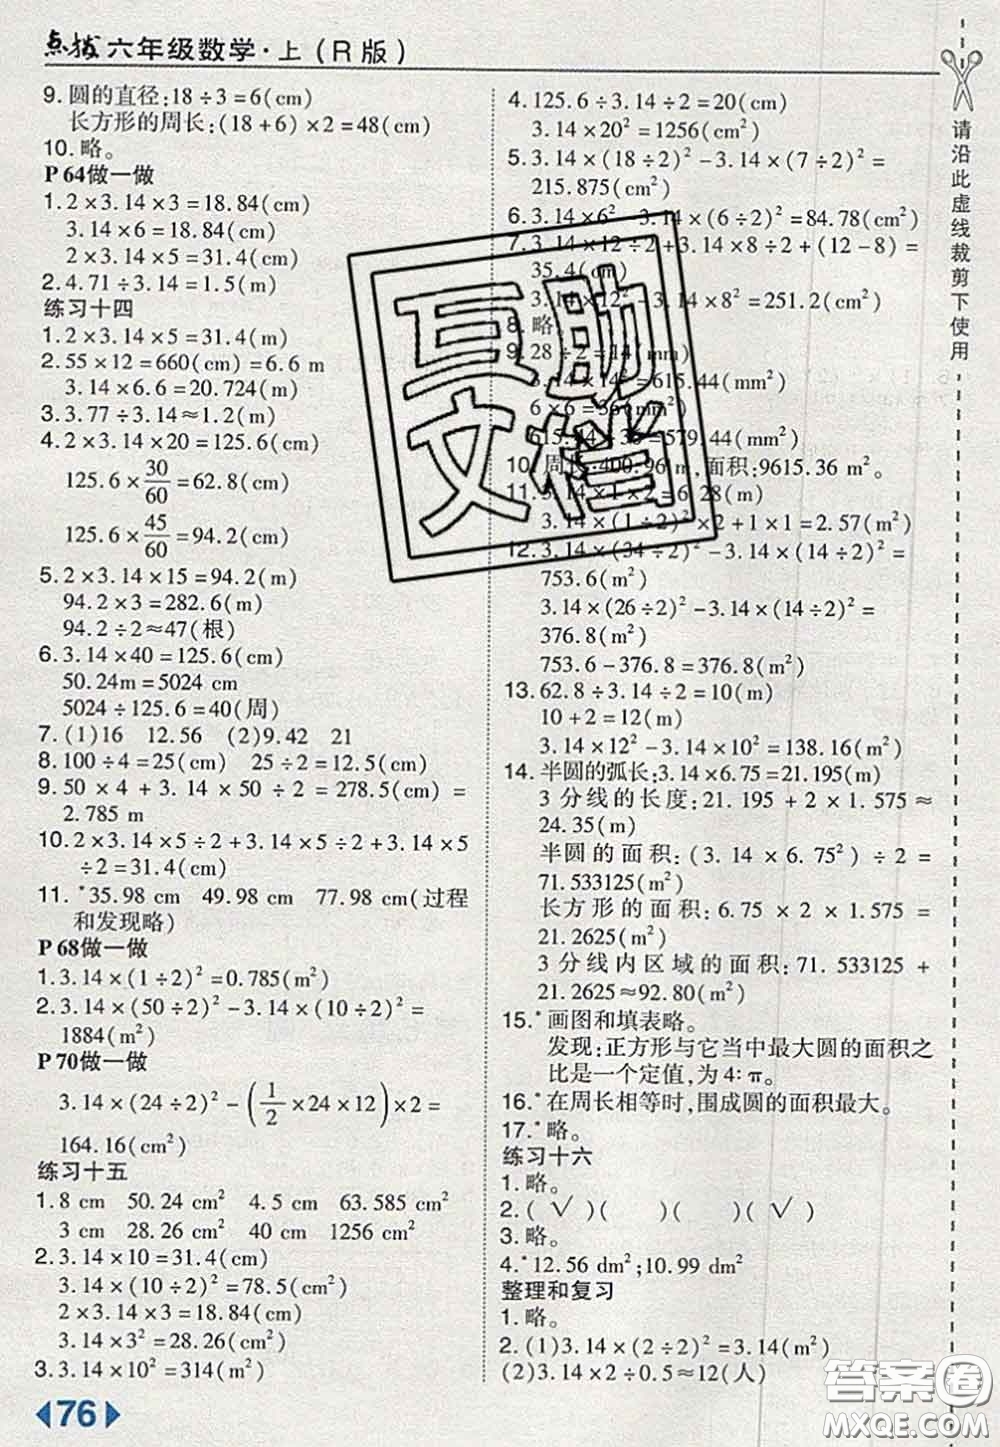 点拨 六年级数学·上(R版)
9.圆的直径:18÷3=6(cm)
长方形的周长:(18+6)×2=48(cm)
10.略。
P64做一做
1.2×3.14×3=18.84(cm)
3.14×6=18.84(cm)
2×3.14×5=31.4(cm)
2.4.71÷3.14=1.5(m)
练习十四
1.2×3.14×5=31.4(m)
2.55×12=660(cm)=6.6 m
3.14×6.6=20.724(m)
3.3.77÷3.14≈1.2(m)
4.2×3.14×20=125.6(cm)
125.6×30/60=62.8(cm)
125.6×45/60=94.2(cm)
5.2×3.14×15=94.2(m)
94.2×3=282.6(m)
94.2÷2≈47(根)
6.3.14×40=125.6(cm)
50.24m=5024 cm
5024÷125.6=40(周)
7.(1)16 12.56 (2)9.42 21
8.100÷4=25(cm) 25÷2=12.5(cm)
9.50×4+3.14×50÷2=278.5(cm)=
2.785 m
10.2×3.14×5÷2+3.14×5÷2+3.14×5
÷2=31.4(cm)
11.*35.98 cm 49.98 cm 77.98 cm(过程
和发现略)
P68做一做
1.3.14×(1÷2)²=0.785(m²)
2.3.14×(50÷2)²-3.14×(10÷2)²=
1884(m²)
P70做一做
3.14×(24÷2)²-(1/2×24×12)×2=
164.16(cm²)
练习十五
1.8 cm 50.24 cm² 4.5 cm 63.585 cm²
3 cm 28.26 cm² 40 cm 1256 cm²
2.3.14×10=31.4(cm)
3.14×(10÷2)²=78.5(cm²)
2×3.14×3=18.84(cm)
3.14×3²=28.26(cm²)
3.3.14×10²=314(m²)
76
4.125.6÷3.14÷2=20(cm)
3.14×20²=1256(cm²)
5.3.14×(18÷2)²-3.14×(7÷2)²=
215.875(cm²)
6.3.14×6²-3.14×(6÷2)²=84.78(cm²)
7.3.14×12÷2+3.14×8÷2+(12-8)=
35.4(cm)
3.14×12²-3.14×8²=251.2(cm²)
8.略。
9.28÷2=14(mm)
3.14×14²=615.44(mm²)
6×6=36(mm²)
615.44-36=579.44(mm²)
10.周长:400.96 m,面积:9615.36 m²。
11.3.14×1×2=6.28(m)
3.14×(1÷2)²×2+1×1=2.57(m²)
12.3.14×(34÷2)²-3.14×(14÷2)²=
753.6(m²)
3.14×(26÷2)²-3.14×(14÷2)²=
376.8(m²)
753.6-376.8=376.8(m²)
13.62.8÷3.14÷2=10(m)
10+2=12(m)
3.14×12²-3.14×10²=138.16(m²)
14.半圆的弧长:3.14×6.75=21.195(m)
3分线的长度:21.195+2×1.575≈
24.35(m)
半圆的面积:(3.14×6.75²)÷2=
71.533125(m²)
长方形的面积:6.75×2×1.575=
21.2625(m²)
3分线内区域的面积:71.533125+
21.2625≈92.80(m²)
15.*画图和填表略。
发现:正方形与它当中最大圆的面积之
比是一个定值,为4∶π。
16.*在周长相等时,围成圆的面积最大。
17.*略。
练习十六
1.略。
2.(√)( )( )(√)
3.略。
4.*12.56 dm²;10.99 dm²
整理和复习
1.略。
2.(1)3.14×(2÷2)²=3.14(m²)
(2)3.14×2÷0.5≈12(人)
请沿此虚线裁剪下使用
互助
文档
答案圈
MXQE.COM